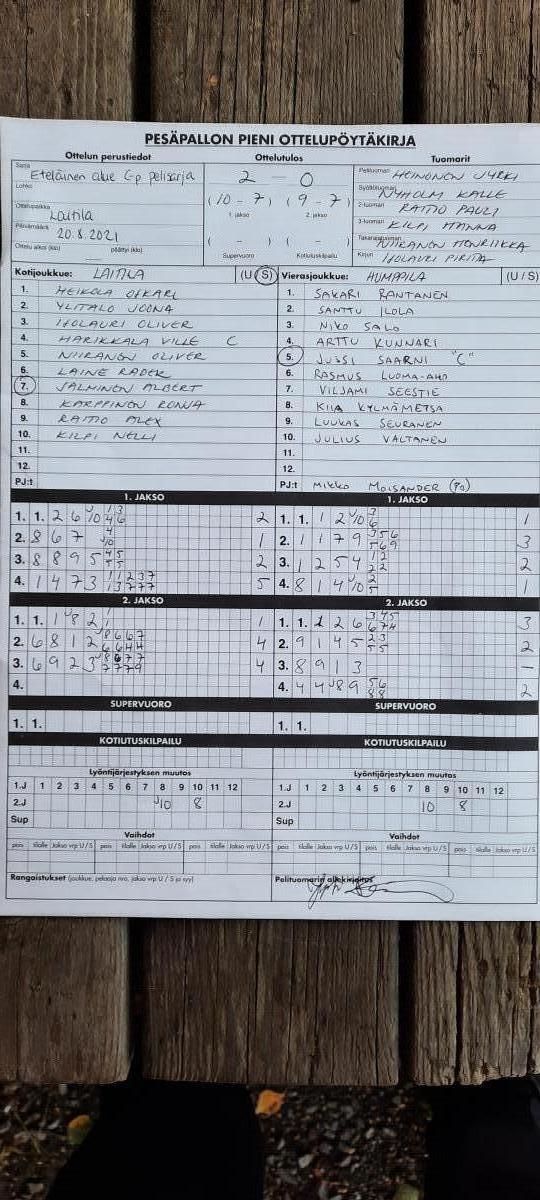 PESÄPALLON PIENI OTTELUPÖYTÄKIRJA
Ottelun perustiedot
Sarja Eteläinen alue Gp pelisarja
Lohko
Ottelupaikka Laitila
Päivämäärä 20.8.2021
Ottelu alkoi (klo) päättyi (klo)
Ottelutulos
2 - 0
(10 - 7) (9 - 7)
1. jakso 2. jakso
( - ) ( - )
Supervuoro Kotiutuskilpailu
Tuomarit
Pelituomari HEINONEN JYRKI
Syöttötuomari NYHOLM KALLE
2-tuomari RAITIO PAULI
3-tuomari KILPI HANNA
Takarajatuomari NIIRANEN HENRIIKKA
Kirjuri IHOLAURI PIRITA
Kotijoukkue: LAITILA (U/S)
1. HEIKOLA OSKARI
2. YLITALO JOONA
3. IHOLAURI OLIVER
4. HARIKKALA VILLE C
5. NIIRANEN OLIVER
6. LAINE RADEK
7. SALMINEN ALBERT
8. KARPPINEN RONJA
9. RAITIO ALEX
10. KILPI NELLI
11.
12.
PJ:t
Vierasjoukkue: HUMPPILA (U / S)
1. SAKARI RANTANEN
2. SANTTU ILOLA
3. NIKO SALO
4. ARTTU KUNNARI
5. JUSSI SAARNI "C"
6. RASMUS LUOMA-AHO
7. VILJAMI SEESTIE
8. KIIA KYLMÄMETSÄ
9. LUUKAS SEURANEN
10. JULIUS VALTANEN
11.
12.
PJ:t MIKKO MOISANDER (PJ)
1. JAKSO
1. 1. 2 6 J10 2
2. 8 6 7 1
3. 8 8 9 5 2
4. 1 4 7 3 5
2. JAKSO
1. 1. 1 J8 2 1
2. 6 8 1 2 4
3. 6 9 2 3 4
4.
SUPERVUORO
1. 1.
KOTIUTUSKILPAILU
1. JAKSO
1. 1. 1 2 J10 1
2. 1 1 7 9 3
3. 1 2 5 4 2
4. 8 1 4 J10 1
2. JAKSO
1. 1. 1 2 6 3
2. 9 1 4 5 2
3. 8 9 1 3 –
4. 4 4 J8 9 2
SUPERVUORO
1. 1.
KOTIUTUSKILPAILU
Lyöntijärjestyksen muutos
1.J 1 2 3 4 5 6 7 8 9 10 11 12
2.J J10 8
Sup
Vaihdot
pois tilalle Jakso vrp U / S pois tilalle Jakso vrp U / S
Rangaistukset (joukkue, pelaaja nro, jakso vrp U / S ja syy)
Lyöntijärjestyksen muutos
1.J 1 2 3 4 5 6 7 8 9 10 11 12
2.J 10 8
Sup
Vaihdot
pois tilalle Jakso vrp U / S pois tilalle Jakso vrp U / S
Pelituomarin allekirjoitus